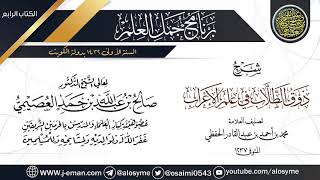 الكتاب الرابع
برنامج جمل العلم
السنة الأولى ١٤٣٦ بدولة الكويت
شرح
ذوق الطلاب في علم الإعراب
لتصنيف العلامة
محمد بن أحمد بن عبد القادر الحفظي
المتوفى ١٢٣٧
لمعالي الشيخ الدكتور
صالح بن عبد الله بن حمد العصيمي
عضو هيئة كبار العلماء والمدرس بالحرمين الشريفين
غفر الله له ولوالديه ولمشايخه وللمسلمين
www.j-eman.com
@alosyme
@osaimi0543
youtube.com/alosyme